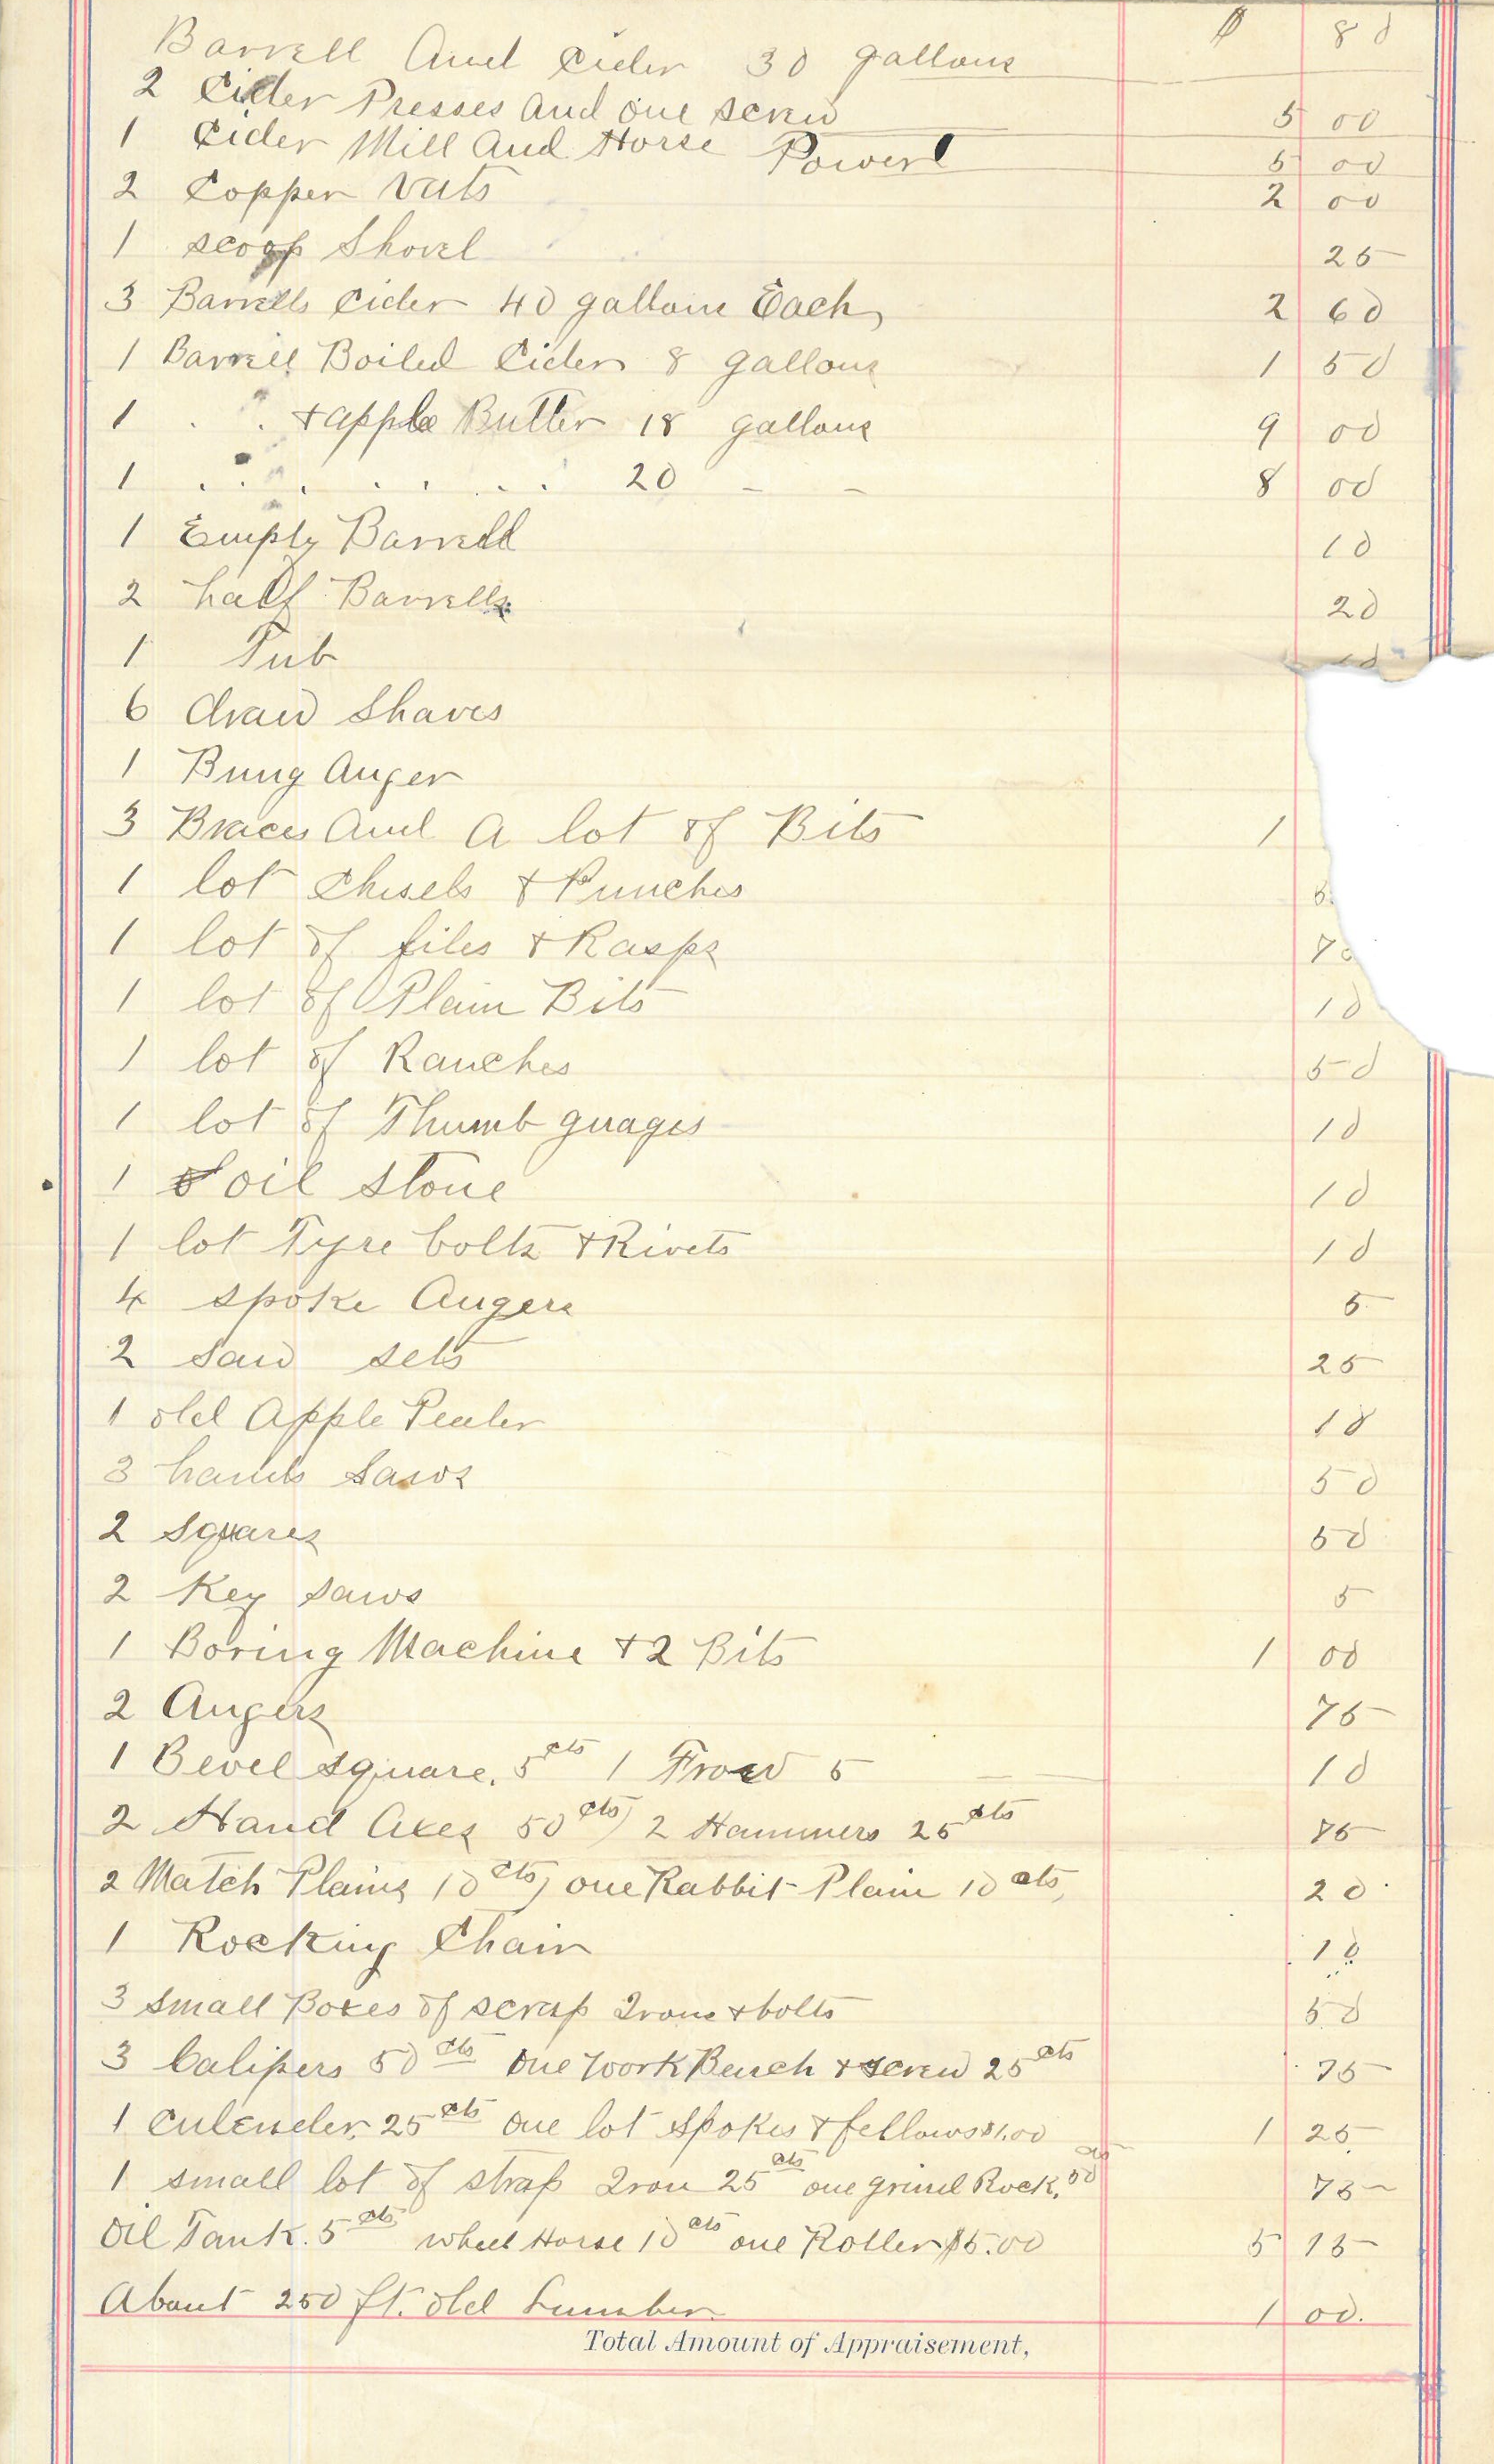 Barrell And Cider 30 gallons $ 80
2 Cider Presses and one screw 5 00
1 Cider Mill And Horse Power 5 00
2 Copper Vats 2 00
1 scoop Shovel 25
3 Barrells Cider 40 gallons Each 2 60
1 Barrell Boiled Cider 8 gallons 1 50
1 . . + apple Butter 18 gallons 9 00
1 . . . . . . . . 20 - - 8 00
1 Empty Barrell 10
2 half Barrells 20
1 Tub 10
6 draw Shaves
1 Bung Auger
3 Braces And A lot of Bits 1
1 lot Chisels & Punches 5
1 lot of files & Rasps 70
1 lot of Plain Bits 10
1 lot of Ranches 50
1 lot of Thumb guages 10
1 oil stone 10
1 lot Tyre bolts & Rivets 10
4 spoke Augers 5
2 saw sets 25
1 old Apple Pealer 10
3 hands Saws 50
2 Squares 50
2 Key saws 5
1 Boring Machine + 2 Bits 1 00
2 Augers 75
1 Bevel square. 5 cts 1 Frow 5 10
2 Hand Axes 50 cts, 2 Hammers 25 cts 75
2 Match Plains 10 cts, one Rabbit Plain 10 cts, 20
1 Rocking Chair 10
3 small Boxes of scrap Irons & bolts 50
3 Calipers 50 cts one work Bench & screw 25 cts 75
1 Culender. 25 cts one lot spokes & fellows $1.00 1 25
1 small lot of strap Iron 25 cts one grind Rock. 50 cts 75
Oil Tank. 5 cts wheel Horse 10 cts one Roller $5.00 5 15
About 250 ft. old Lumber 1 00.
Total Amount of Appraisement,